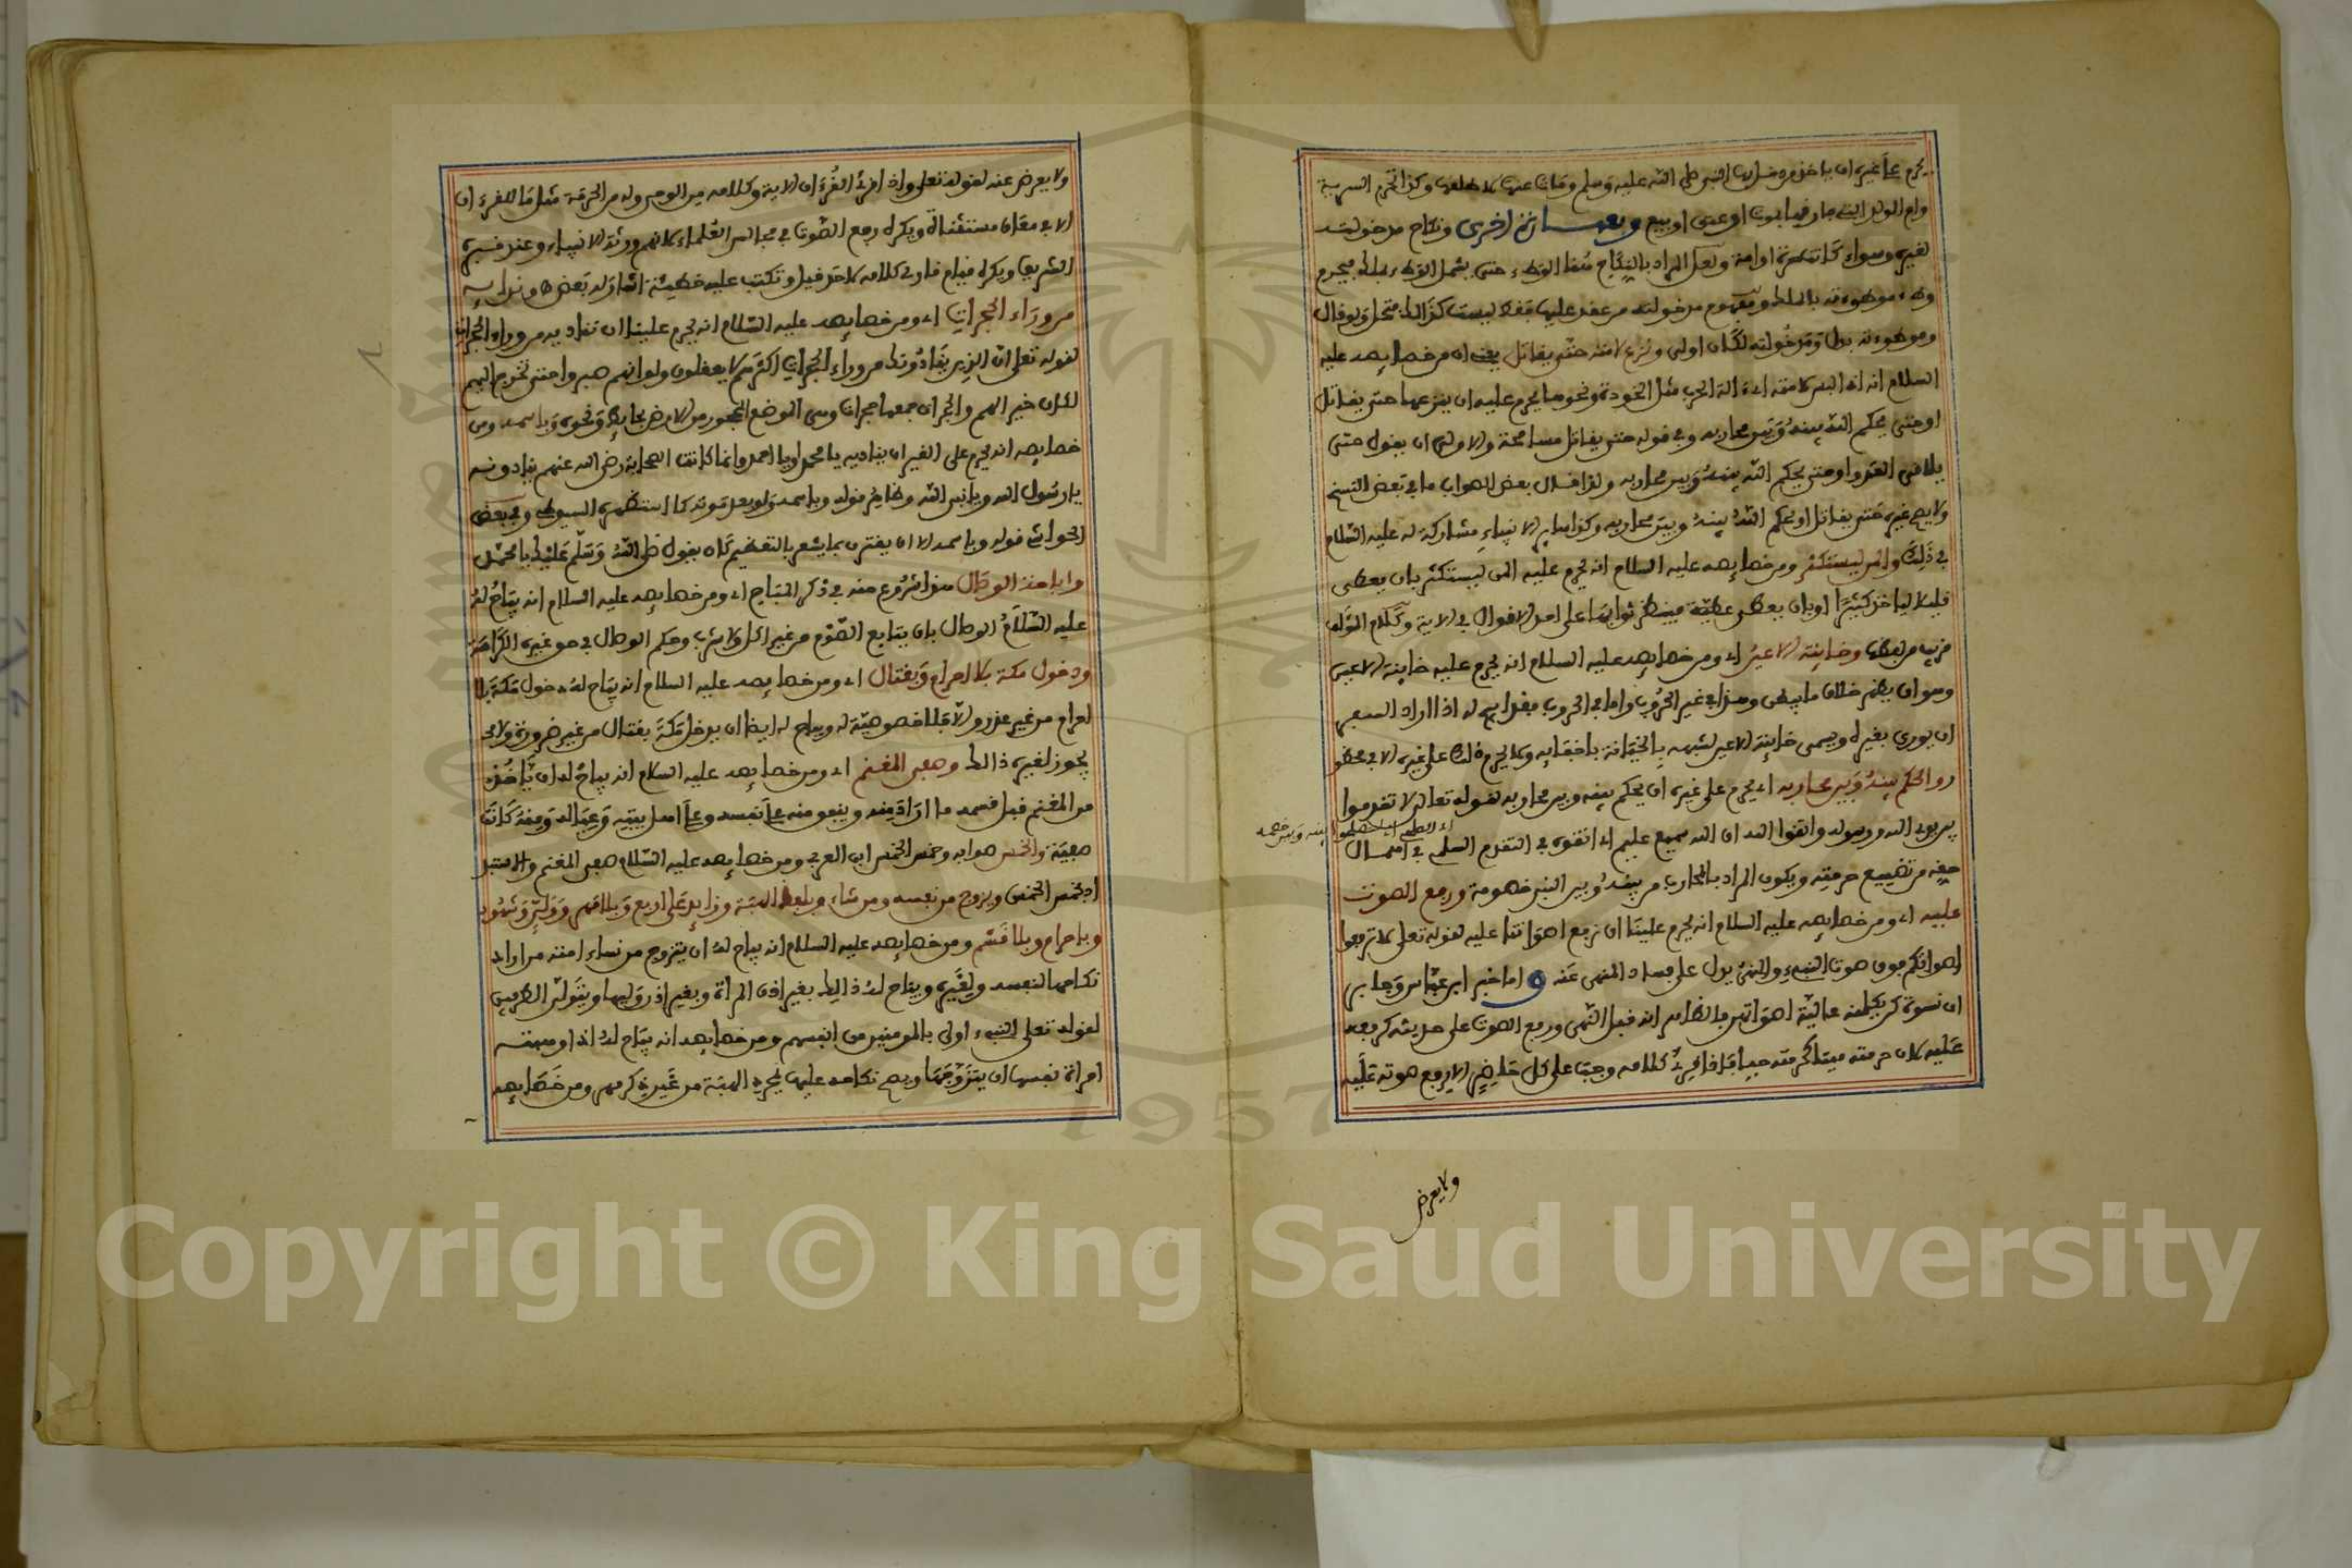 يحرم على غيره ان ياخذ مدخولته النبي صلى الله عليه وسلم ومات عنها كلها وكذا تحرم السرية
وام الولد التي فارقها بموت او عتق او بيع ونكاح مدخولته
لغيره وسواء كانت حرة او امة ولعل المراد بالنكاح هنا الوطء حتى يشمل الوطء بالملك فيحرم
وطء موطوءته بالملك ومفهوم مدخولته من عقد عليها فقط ليست كذلك فتحل ولو قال
وموطوءته بدل ومدخولته لكان اولى ونزع لامته حتى يقاتل يعني ان من خصايصه عليه
السلام انه اذا لبس لامته اي الة الحرب مثل الخودة ونحوها يحرم عليه ان ينزعها حتى يقاتل
او حتى يحكم الله بينه وبين محاربه وفي قوله حتى يقاتل مسامحة والاولى ان يقول حتى
يلاقي العدو او حتى يحكم الله بينه وبين محاربه ولذا قال بعض الصواب ما في بعض النسخ
ولا يصح غيره حتى يقاتل او يحكم الله بينه وبين محاربه وكذا ساير الانبياء مشاركة له عليه السلام
في ذلك والمن ليستكثر ومن خصايصه عليه السلام انه يحرم عليه المن ليستكثر بان يعطي
قليلا لياخذ كثيرا او بان يعطي عطية فينتظر ثوابها على احد الاقوال في الاية وكلام المؤلف
قريب من لفظها وخاينة الاعين اي ومن خصايصه عليه السلام انه يحرم عليه خاينة الاعين
وهو ان يظهر خلاف ما يخفي وهذا في غير الحروب واما في الحروب فقد ابيح له اذا اراد السفر
ان يوري بغيره ويسمى خاينة الاعين لشبهه بالخيانة باخفايه ولا يحرم ذلك على غيره الا في محظور
روالحكم بينه وبين محاربه اي يحرم على غيره ان يحكم بينه وبين محاربه لقوله تعالى لا تقدموا
بين يدي الله ورسوله واتقوا الله ان الله سميع عليم اي اتقوه في التقدم السلم في اهمال
حقه من تضييع حرمته ويكون المراد بالمحارب من بينه وبين النبي خصومة ورفع الصوت
عليه اي ومن خصايصه عليه السلام انه يحرم علينا ان نرفع اصواتنا عليه لقوله تعالى لا ترفعوا
اصواتكم فوق صوت النبي والنهي يدل على فساد المنهي عنه واما خبر ابن عباس وجابر
ان نسوة كن يكلمنه عالية اصواتهن فالظاهر انه قبل النهي ورفع الصوت على حديثه كرفعه
عليه لان حرمته ميتا كحرمته حيا فاذا قرئ كلامه وجب على كل حاضر الا يرفع صوته عليه
ولا يعرض
ولا يعرض عنه لقوله تعلى واذا قرئ القرءان الاية وكلامه من الوحي وله من الحرمة مثل ما للقرءان
الا في معان مستثناة ويكره رفع الصوت في مجالس العلماء لانهم ورثة الانبياء وعند قبره
الشريف ويكره قيام قارئ كلامه لاحد قيل وتكتب عليه خطيئة اشار له بعض ونداوه
من وراء الحجرات اي ومن خصايصه عليه السلام انه يحرم علينا ان نناديه من وراء الحجرات
لقوله تعلى ان الذين ينادونك من وراء الحجرات اكثرهم لا يعقلون ولو انهم صبروا حتى تخرج اليهم
لكان خيرا لهم والحجرات جمعها حجرات وهي الموضع المحجور من الارض بحايط ونحوه وباسمه ومن
خصايصه انه يحرم على الغير ان يناديه يا محمد او يا احمد وانما كانت الصحابة رضي الله عنهم ينادونه
يا رسول الله ويا نبي الله وظاهر قوله وباسمه ولو بعد موته كما استظهره السيوطي وفي بعض
الحواشي قوله وباسمه الا ان يقترن بما يشعر بالتعظيم كان يقول صلى الله وسلم عليك يا محمد
واباحة الوصال هذا شروع منه في ذكر المباح اي ومن خصايصه عليه السلام انه يباح له
عليه السلام الوصال بان يتابع الصوم من غير اكل ولا شرب وحكم الوصال في حق غيره الكراهة
ودخول مكة بلا احرام وبقتال اي ومن خصايصه عليه السلام انه يباح له دخول مكة بلا
احرام من غير عذر والا فلا خصوصية له ويباح له ايضا ان يدخل مكة بقتال من غير ضرورة ولا
يجوز لغيره ذلك وصفي المغنم اي ومن خصايصه عليه السلام انه يباح له ان ياخذ
من المغنم قبل قسمه ما اراد منه وينفق منه على نفسه وعلى اهل بيته وعياله ومنه كانت
صفية والخمس صوابه وخمس الخمس ابن العربي ومن خصايصه عليه السلام صفي المغنم والاستبداد
بخمس الخمس ويزوج من نفسه ومن شاء وبلفظ الهبة وزايد على اربع وبلا مهر وولي وشهود
وباحرام وبلا قسم ومن خصايصه عليه السلام انه يباح له ان يتزوج من نساء امته من اراد
نكاحها لنفسه ولغيره ويباح له ذلك بغير اذن المراة وبغير اذن وليها ويتولى الطرفين
لقوله تعلى النبيء اولى بالمومنين من انفسهم ومن خصايصه انه يباح له اذا وهبته
امراة نفسها ان يتزوجها ويصح نكاحه عليها لمجرد الهبة من غير ذكر مهر ومن خصايصه